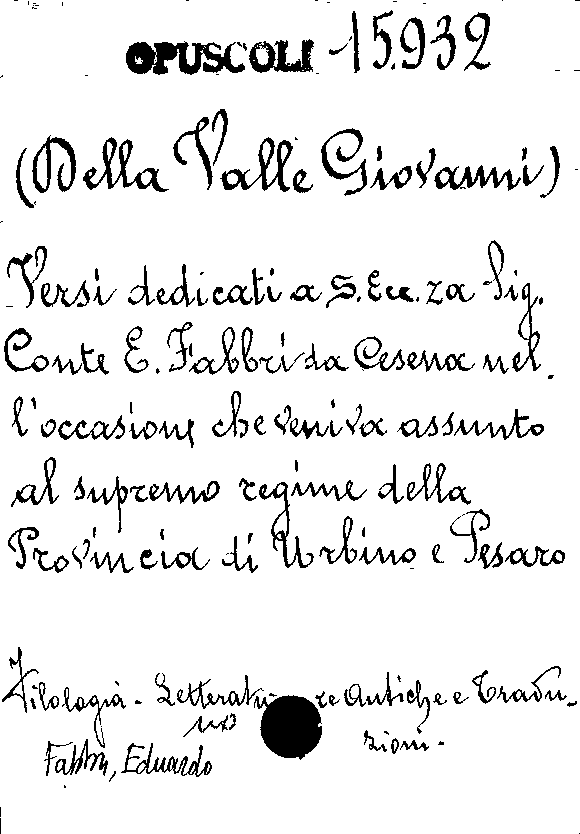 OPUSCOLI 15.932
(Della Valle Giovanni)
Versi dedicati a S. Ecc.za Sig.
Conte E. Fabbri da Cesena nel
l'occasione che veniva assunto
al supremo regime della
Provincia di Urbino e Pesaro
Filologia - Letteratu re Antiche e Tradu-
zioni -
Fabbri, Eduardo